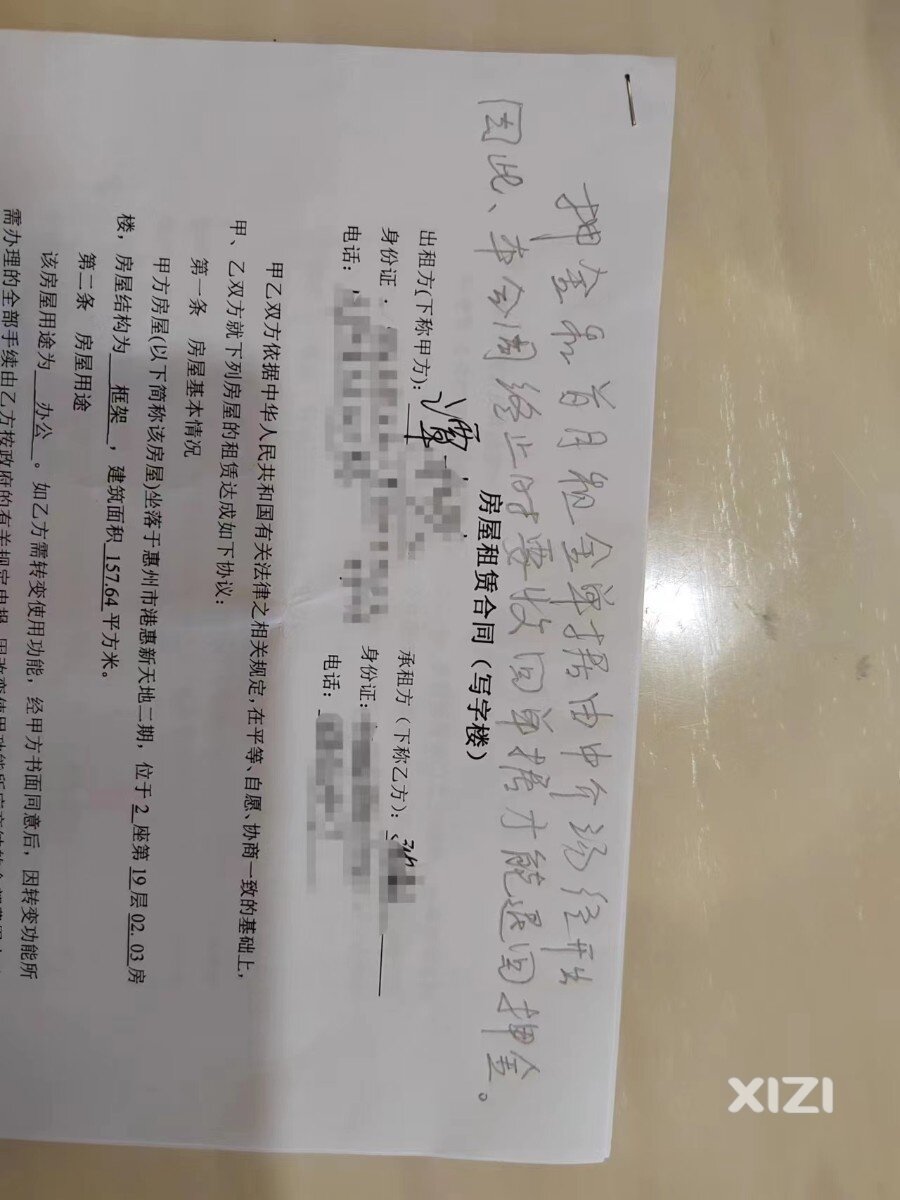 押金和首月租金单据由中介沥经开出
因此、本合同终止时要收回单据才能退回押金。
房屋租赁合同（写字楼）
出租方(下称甲方)：谭 承租方（下称乙方）：
身份证： 身份证：
电话： 电话：
甲乙双方依据中华人民共和国有关法律之相关规定,在平等、自愿、协商一致的基础上,
甲、乙双方就下列房屋的租赁达成如下协议：
第一条 房屋基本情况
甲方房屋(以下简称该房屋)坐落于惠州市港惠新天地二期，位于 2 座第 19 层 02.03 房
楼，房屋结构为 框架 ，建筑面积 157.64 平方米。
第二条 房屋用途
该房屋用途为 办公 。如乙方需转变使用功能，经甲方书面同意后，因转变功能所
需办理的全部手续由乙方按政府的有关规定申报
XIZI